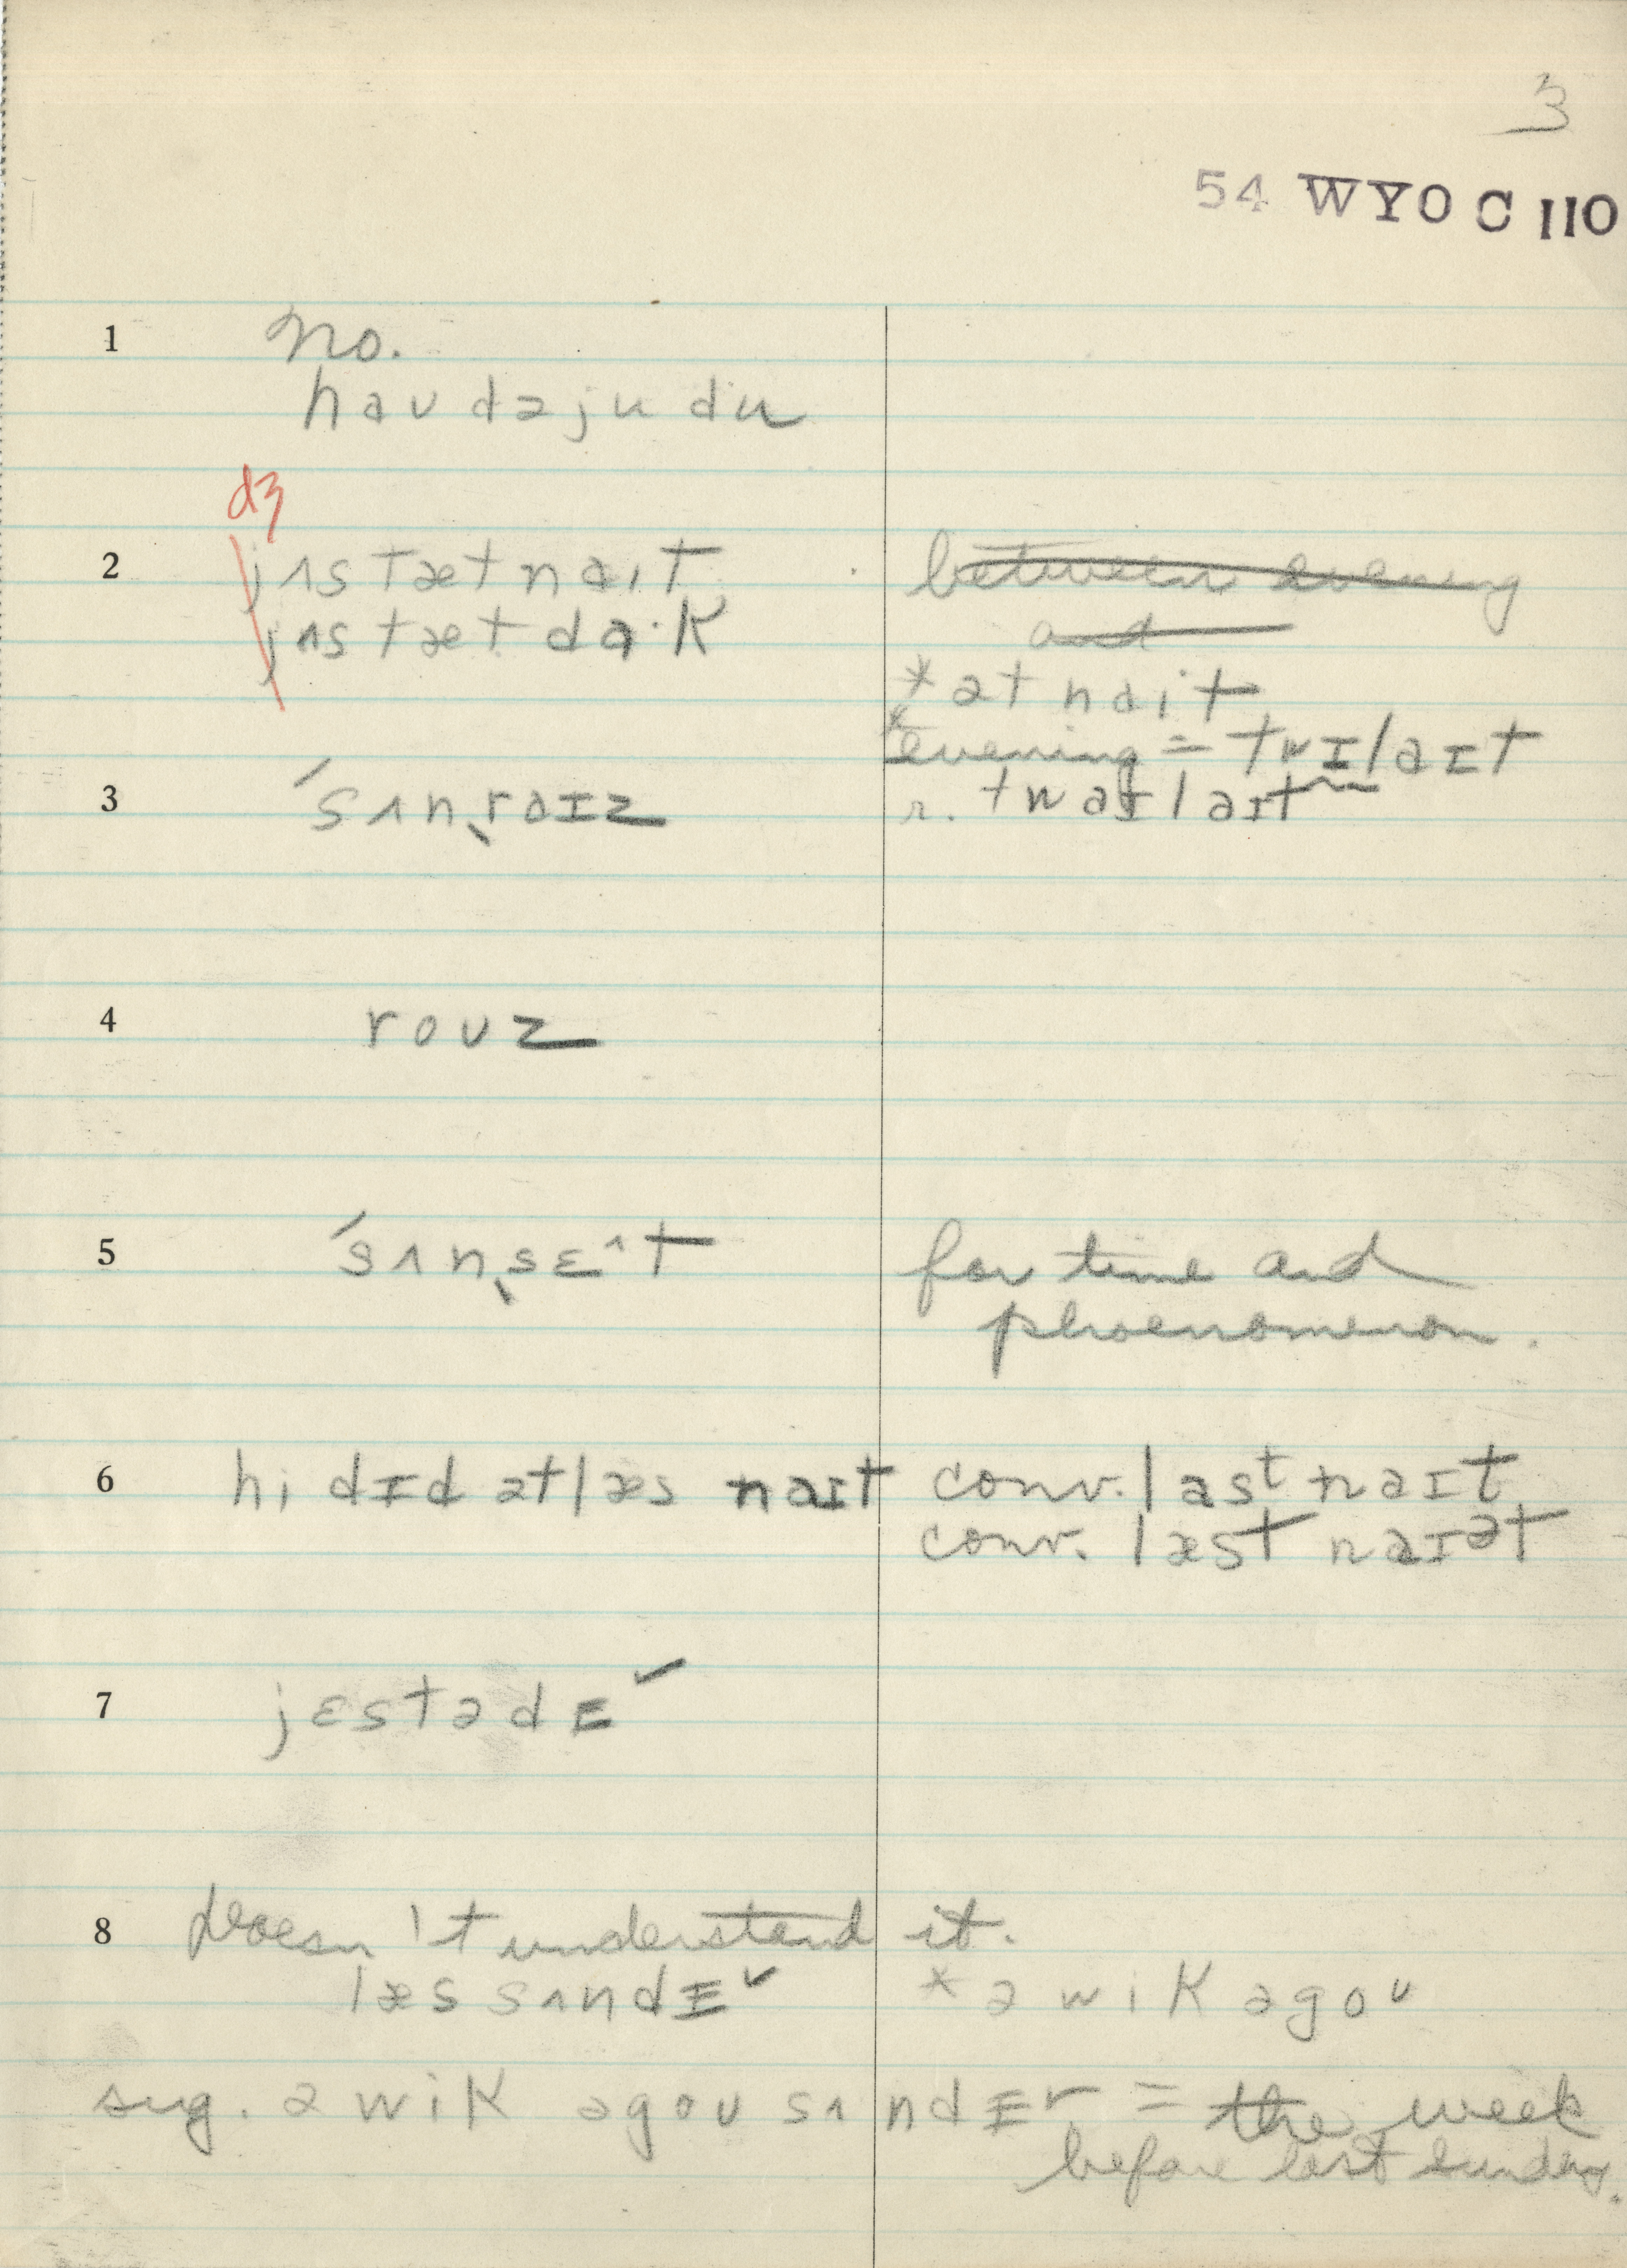 3
54 WYO C 110
1 No.
haʊ dəju du
dʒ
2 jʌstætnaɪt between evening
jʌstætdɑ·k and
*ət nait
*evening = twɪlaɪt
r. twaɪlaɪt
3 ˊsʌnˎraɪz
4 roʊz
5 ˊsʌnˎsɛ^t for time and
phoenomenon.
6 hi dɪd ət læs naɪt conv. last naɪt
conv. læst naɪət
7 jɛstədɪ˅
8 Doesn't understand it.
læs sʌndɪ˅ *ə wik əgoʊ
sug. ə wik əgoʊ sʌndɪ˅ = the week
before last Sunday.